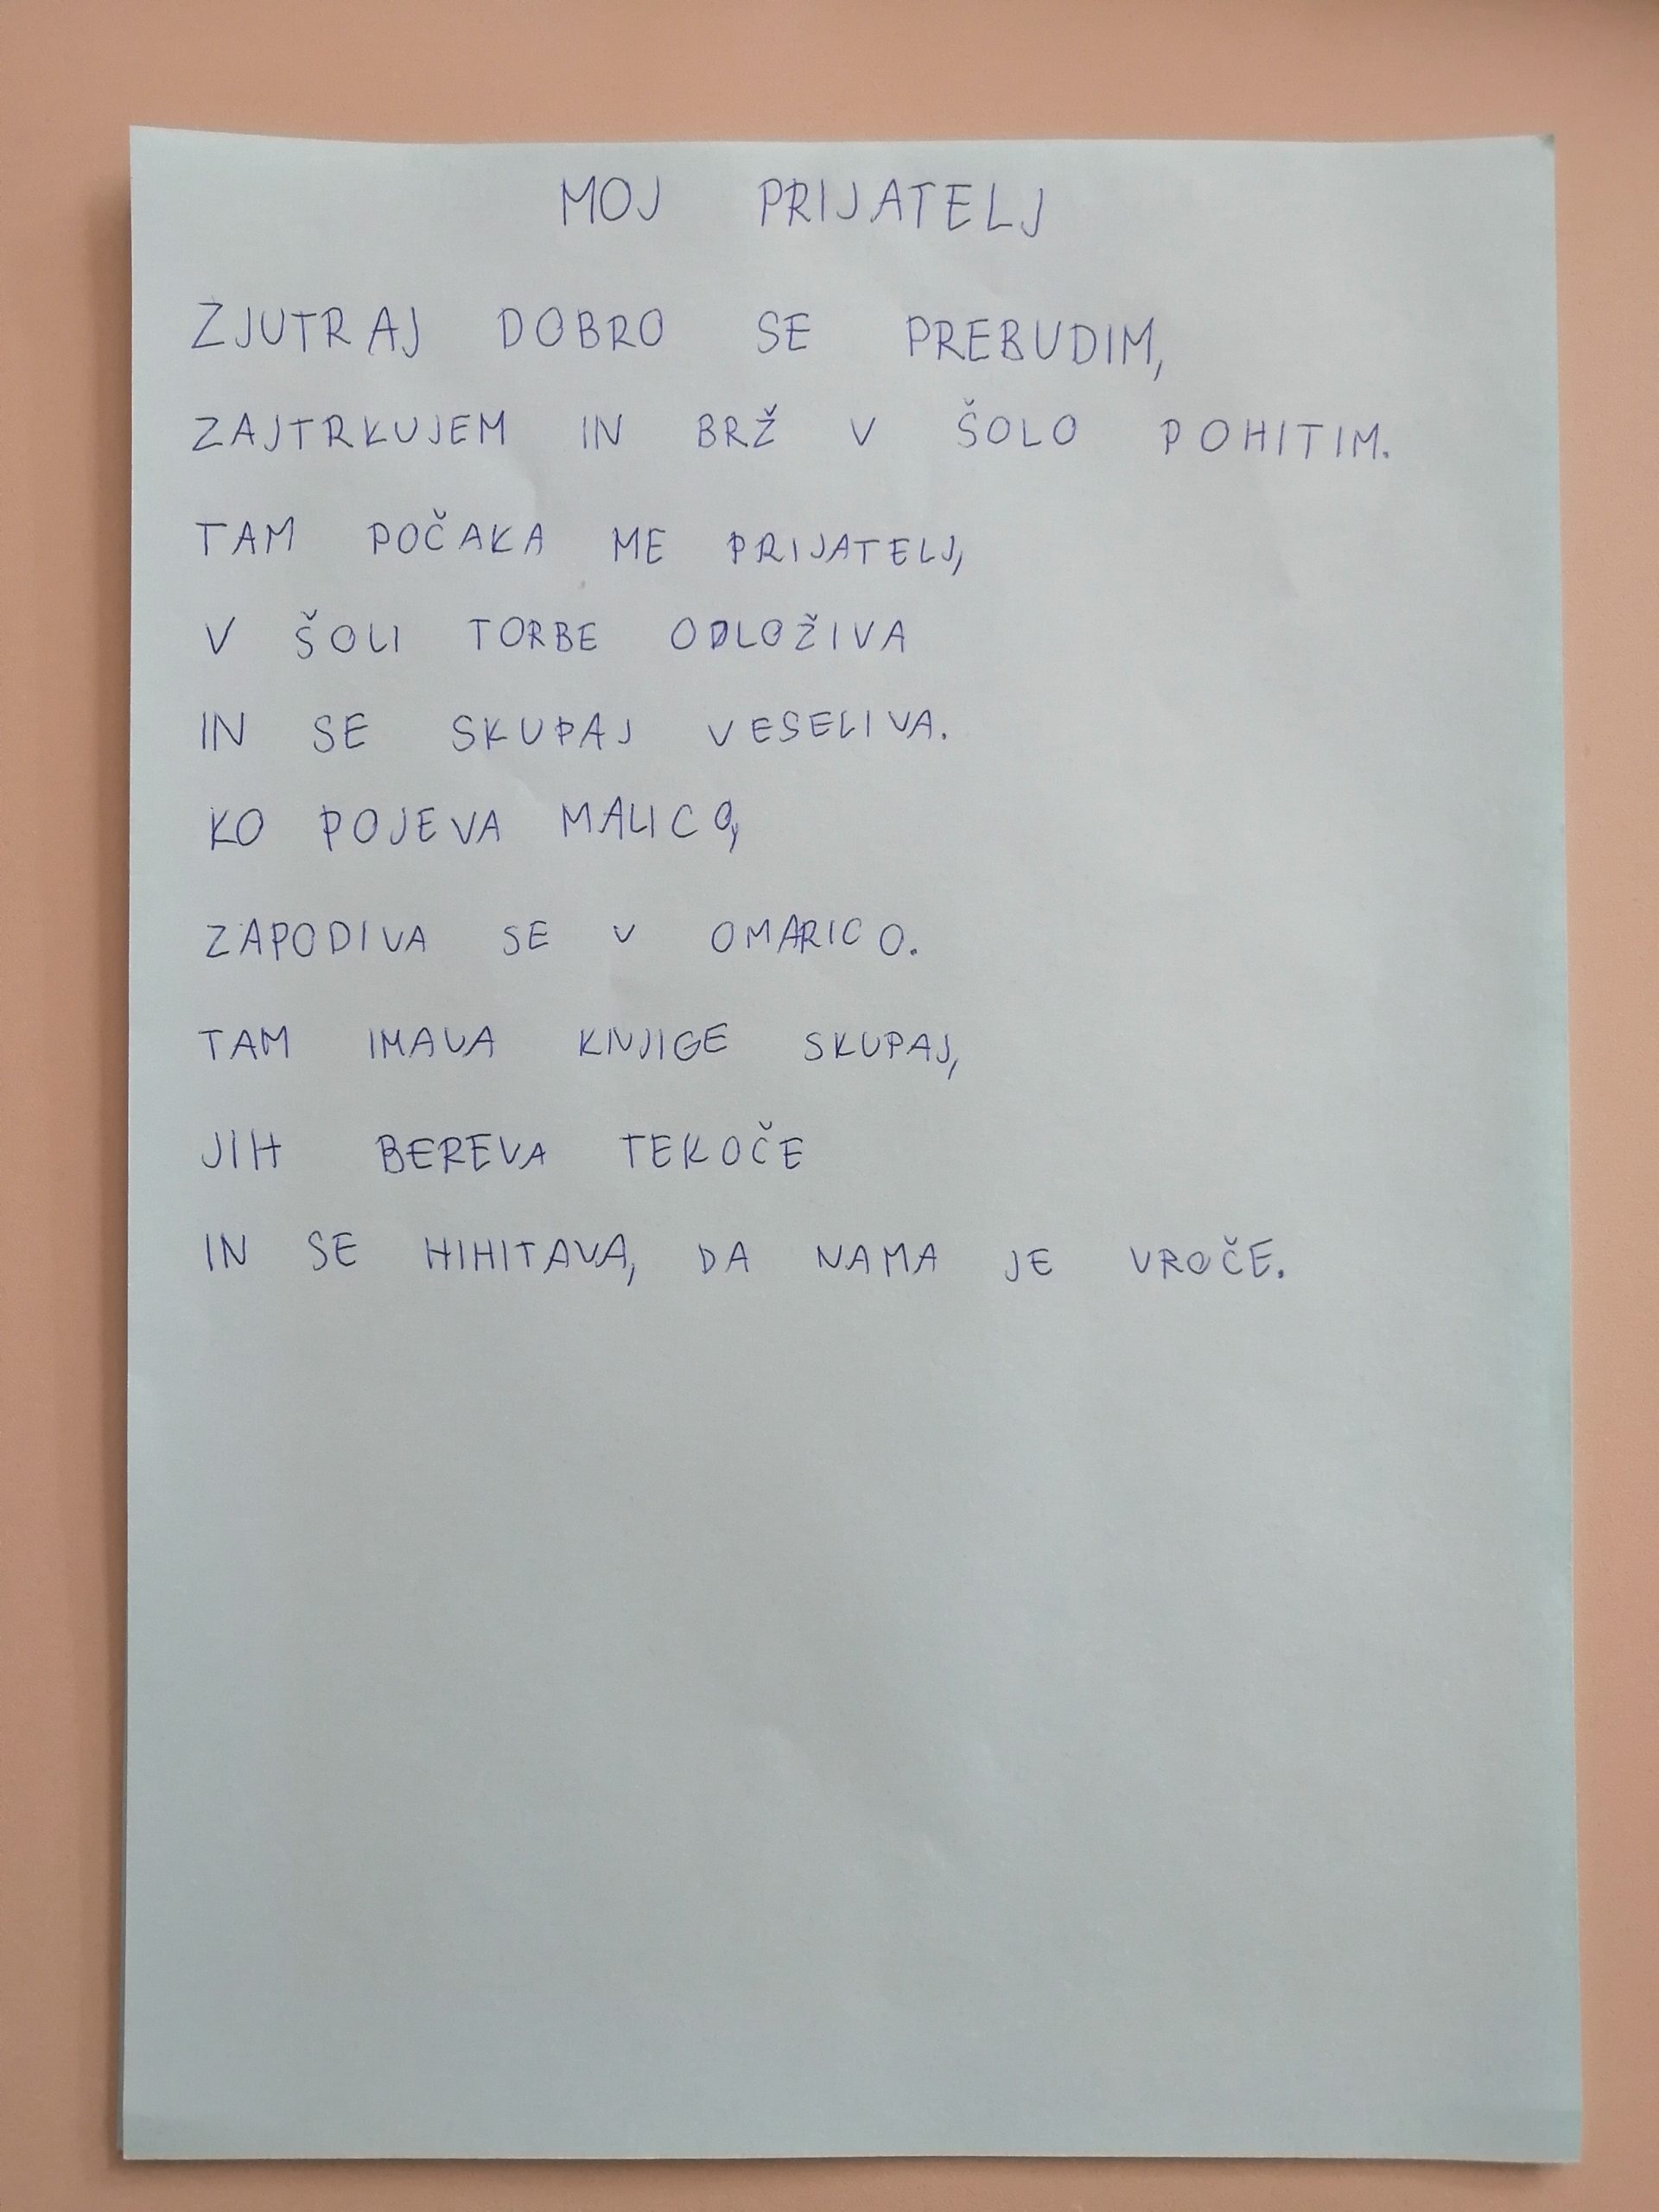 MOJ PRIJATELJ
ZJUTRAJ DOBRO SE PREBUDIM,
ZAJTRKUJEM IN BRŽ V ŠOLO POHITIM.
TAM POČAKA ME PRIJATELJ,
V ŠOLI TORBE ODLOŽIVA
IN SE SKUPAJ VESELIVA.
KO POJEVA MALICO,
ZAPODIVA SE V OMARICO.
TAM IMAVA KNJIGE SKUPAJ,
JIH BEREVA TEKOČE
IN SE HIHITAVA, DA NAMA JE VROČE.